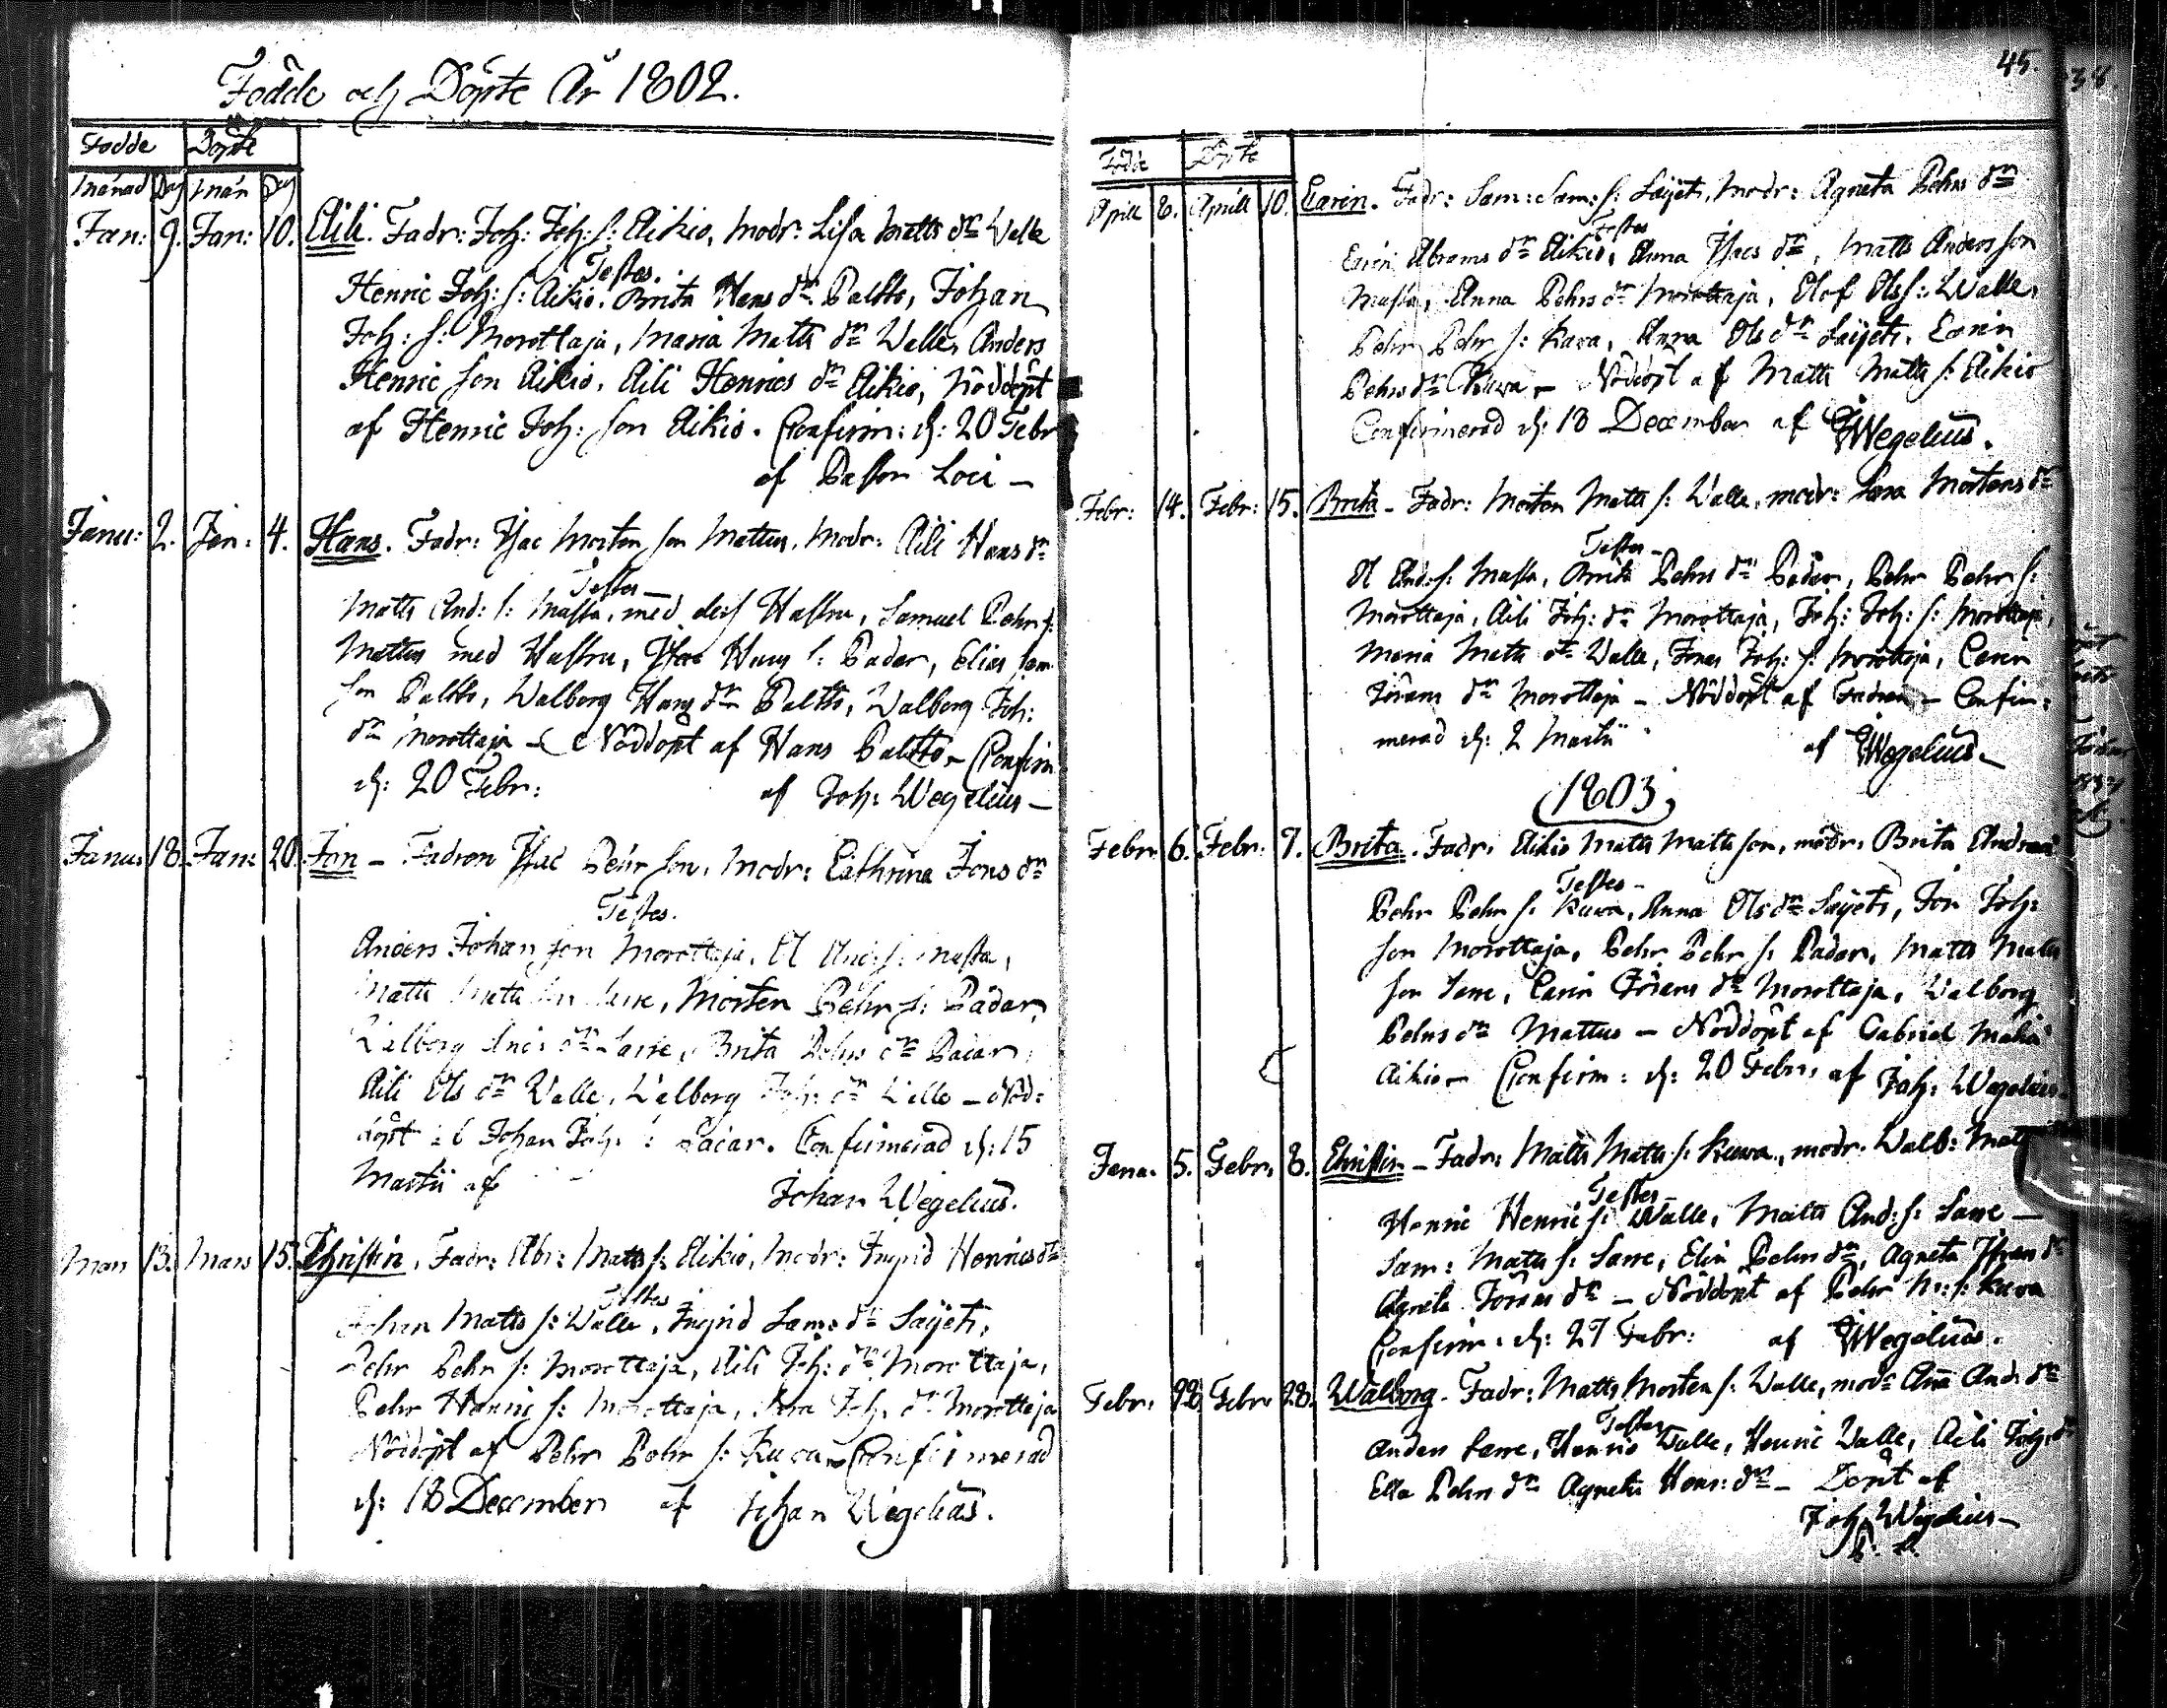 Födde och Döpte År 1802.
Födde Döpte
Månad Dag Mån Dag
Jan: 9. Jan: 10. Aili. Fadr: Joh: Joh: s: Aikio, Modr: Lisa Matts dr Walle
Testes.
Henric Joh: s: Aikio, Brita Hans dr Paltto, Johan
Joh: s: Morottaja, Maria Matts dr Walle, Anders
Henric son Aikio, Aili Henrics dr Aikio, Nöddöpt
af Henric Joh: son Aikio. Confirm: d: 20 Febr
af Pastor Loci –
Janu: 2. Jan: 4. Hans. Fadr: Isac Morten son Mattus, Modr: Aili Hans dr
Testes –
Matts And: s: Massa, med dess Hustru, Samuel Pehr s:
Mattus med Hustru, Hans s: Padar, Elias Sam
son Paltto, Walborg Hans dr Paltto, Walborg Joh:
dr Morottaja – Nöddöpt af Hans Paltto – Confirm
d: 20 Febr: af Joh: Wegelius –
Janu: 18. Jan: 20. Jon – Fadren Isac Pehr son, Modr: Cathrina Jons dr
Testes.
Anders Johan son Morottaja, Ol And: s: Massa,
Matts Matts son Sarre, Morten Pehr s: Padar,
Walborg And: dr Sarre, Brita Pehrs dr Padar,
Aili Ols dr Walle, Walborg Joh: dr Walle – Nöd:
döpt af Johan Joh: s: Padar. Confirmerad d: 15
Martii af Johan Wegelius.
Mars 13. Mars 15. Christin. Fadr: Abr: Matts s: Aikio, Modr: Ingrid Henrics dr
Testes
Johan Matts s: Walle, Ingrid Sam: dr Saijets,
Pehr Pehr s: Morottaja, Aili Joh: dr Morottaja,
Pehr Henric s: Morottaja, Joh: dr Morottaja
Nöddöpt af Pehr Pehr s: Kuwa – Confirmerad
d: 18 December af Johan Wegelius.
45.
Födde Döpte
Aprill 6. Aprill 10. Carin. Fadr: Sam: Sam: s: Saijets, Modr: Agneta Pehrs dr
Testes
Carin Abrams dr Aikio, Anna Isacs dr, Matts Andersson
Massa, Anna Pehrs dr Morottaja, Olof Ols s: Walle,
Pehr Pehr s: Kuwa, Anna Ols dr Saijets, Carin
Pehrs dr Kuwa – Nöddöpt af Matts Matts s: Aikio
Confirmerad d: 18 December af JWegelius.
Febr: 14. Febr: 15. Brita – Fadr: Morten Matts s: Walle, modr: Sara Mortens dr
Testes –
Ol And: s: Massa, Brita Pehrs dr Padar, Pehr Pehr s:
Morottaja, Aili Joh: dr Morottaja, Joh: Joh: s: Morottaja,
Maria Matts dr Walle, Jöns Joh: s: Morottaja, Carin
Jörans dr Morottaja – Nöddöpt af Fadren – Confir:
merad d: 2 Martii af JWegelius –
1803,
Febr: 6. Febr: 7. Brita. Fadr: Aikio Matts Matts son, modr: Brita
Testes –
Pehr Pehr s: Kuwa, Anna Ols dr Saijets, Jon Joh:
son Morottaja, Pehr Pehr s: Padar, Matts Matts
son Sarre, Carin Jörans dr Morottaja, Walborg
Pehrs dr Mattus – Nöddöpt af Gabriel
Aikio – Confirm: d: 20 Febr: af Joh: Wegelius
Janu. 5. Febr: 8. Christin – Fadr: Matts Matts s: Kuwa, modr: Walb:
Testes
Henric Henric s: Walle, Matts And: s: Sarre –
Sam: Matts s: Sarre, Elin Pehrs dr, Agneta dr
Agneta Jörans dr – Nöddöpt af Pehr M: s: Kuwa
Confirm: d: 27 Febr: af JWegelius.
Febr: 22. Febr: 28. Walborg. Fadr: Matts Morten s: Walle, modr Anna And: dr
Testes
Anders Sarre, Henric Walle, Henric Walle, Aili Joh: dr
Ella Pehrs dr Agneta Hans: dr – Döpt af
Joh: Wegelius –